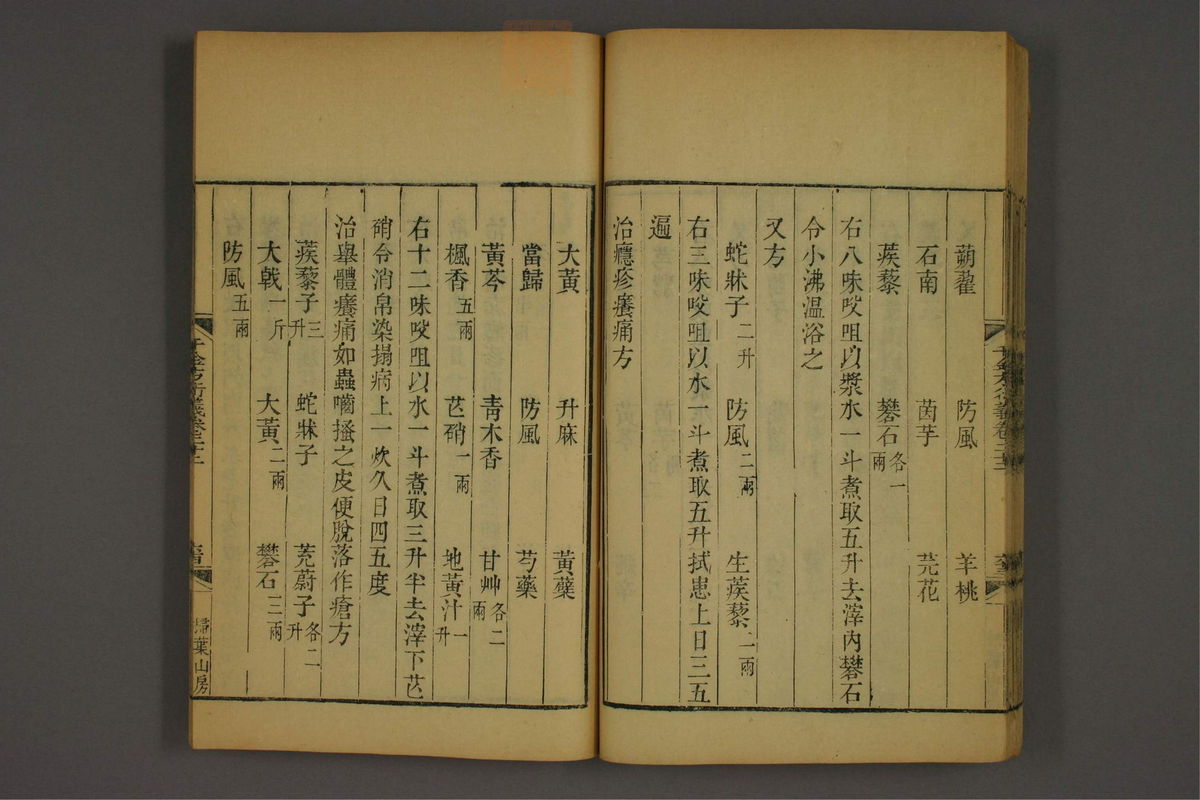 蒴藋　防風　羊桃
石南　茵芋　芫花
蒺藜　礬石各一兩
右八味㕮咀以漿水一斗煮取五升去滓內礬石
令小沸溫浴之
又方
蛇牀子二升　防風二兩　生蒺藜二兩
右三味㕮咀以水一斗煮取五升拭患上日三五
遍
治癮疹癢痛方
大黃　升麻　黃蘗
當歸　防風　芍藥
黃芩　靑木香　甘艸各二兩
楓香五兩　芒硝一兩　地黃汁一升
右十二味㕮咀以水一斗煮取三升半去滓下芒
硝令消帛染搨病上一炊久日四五度
治舉體癢痛如蟲嚙搔之皮便脫落作瘡方
蒺藜子三升　蛇牀子　茺蔚子各二升
大戟一斤　大黃二兩　礬石三兩
防風五兩
千金方衍義卷二十二
掃葉山房